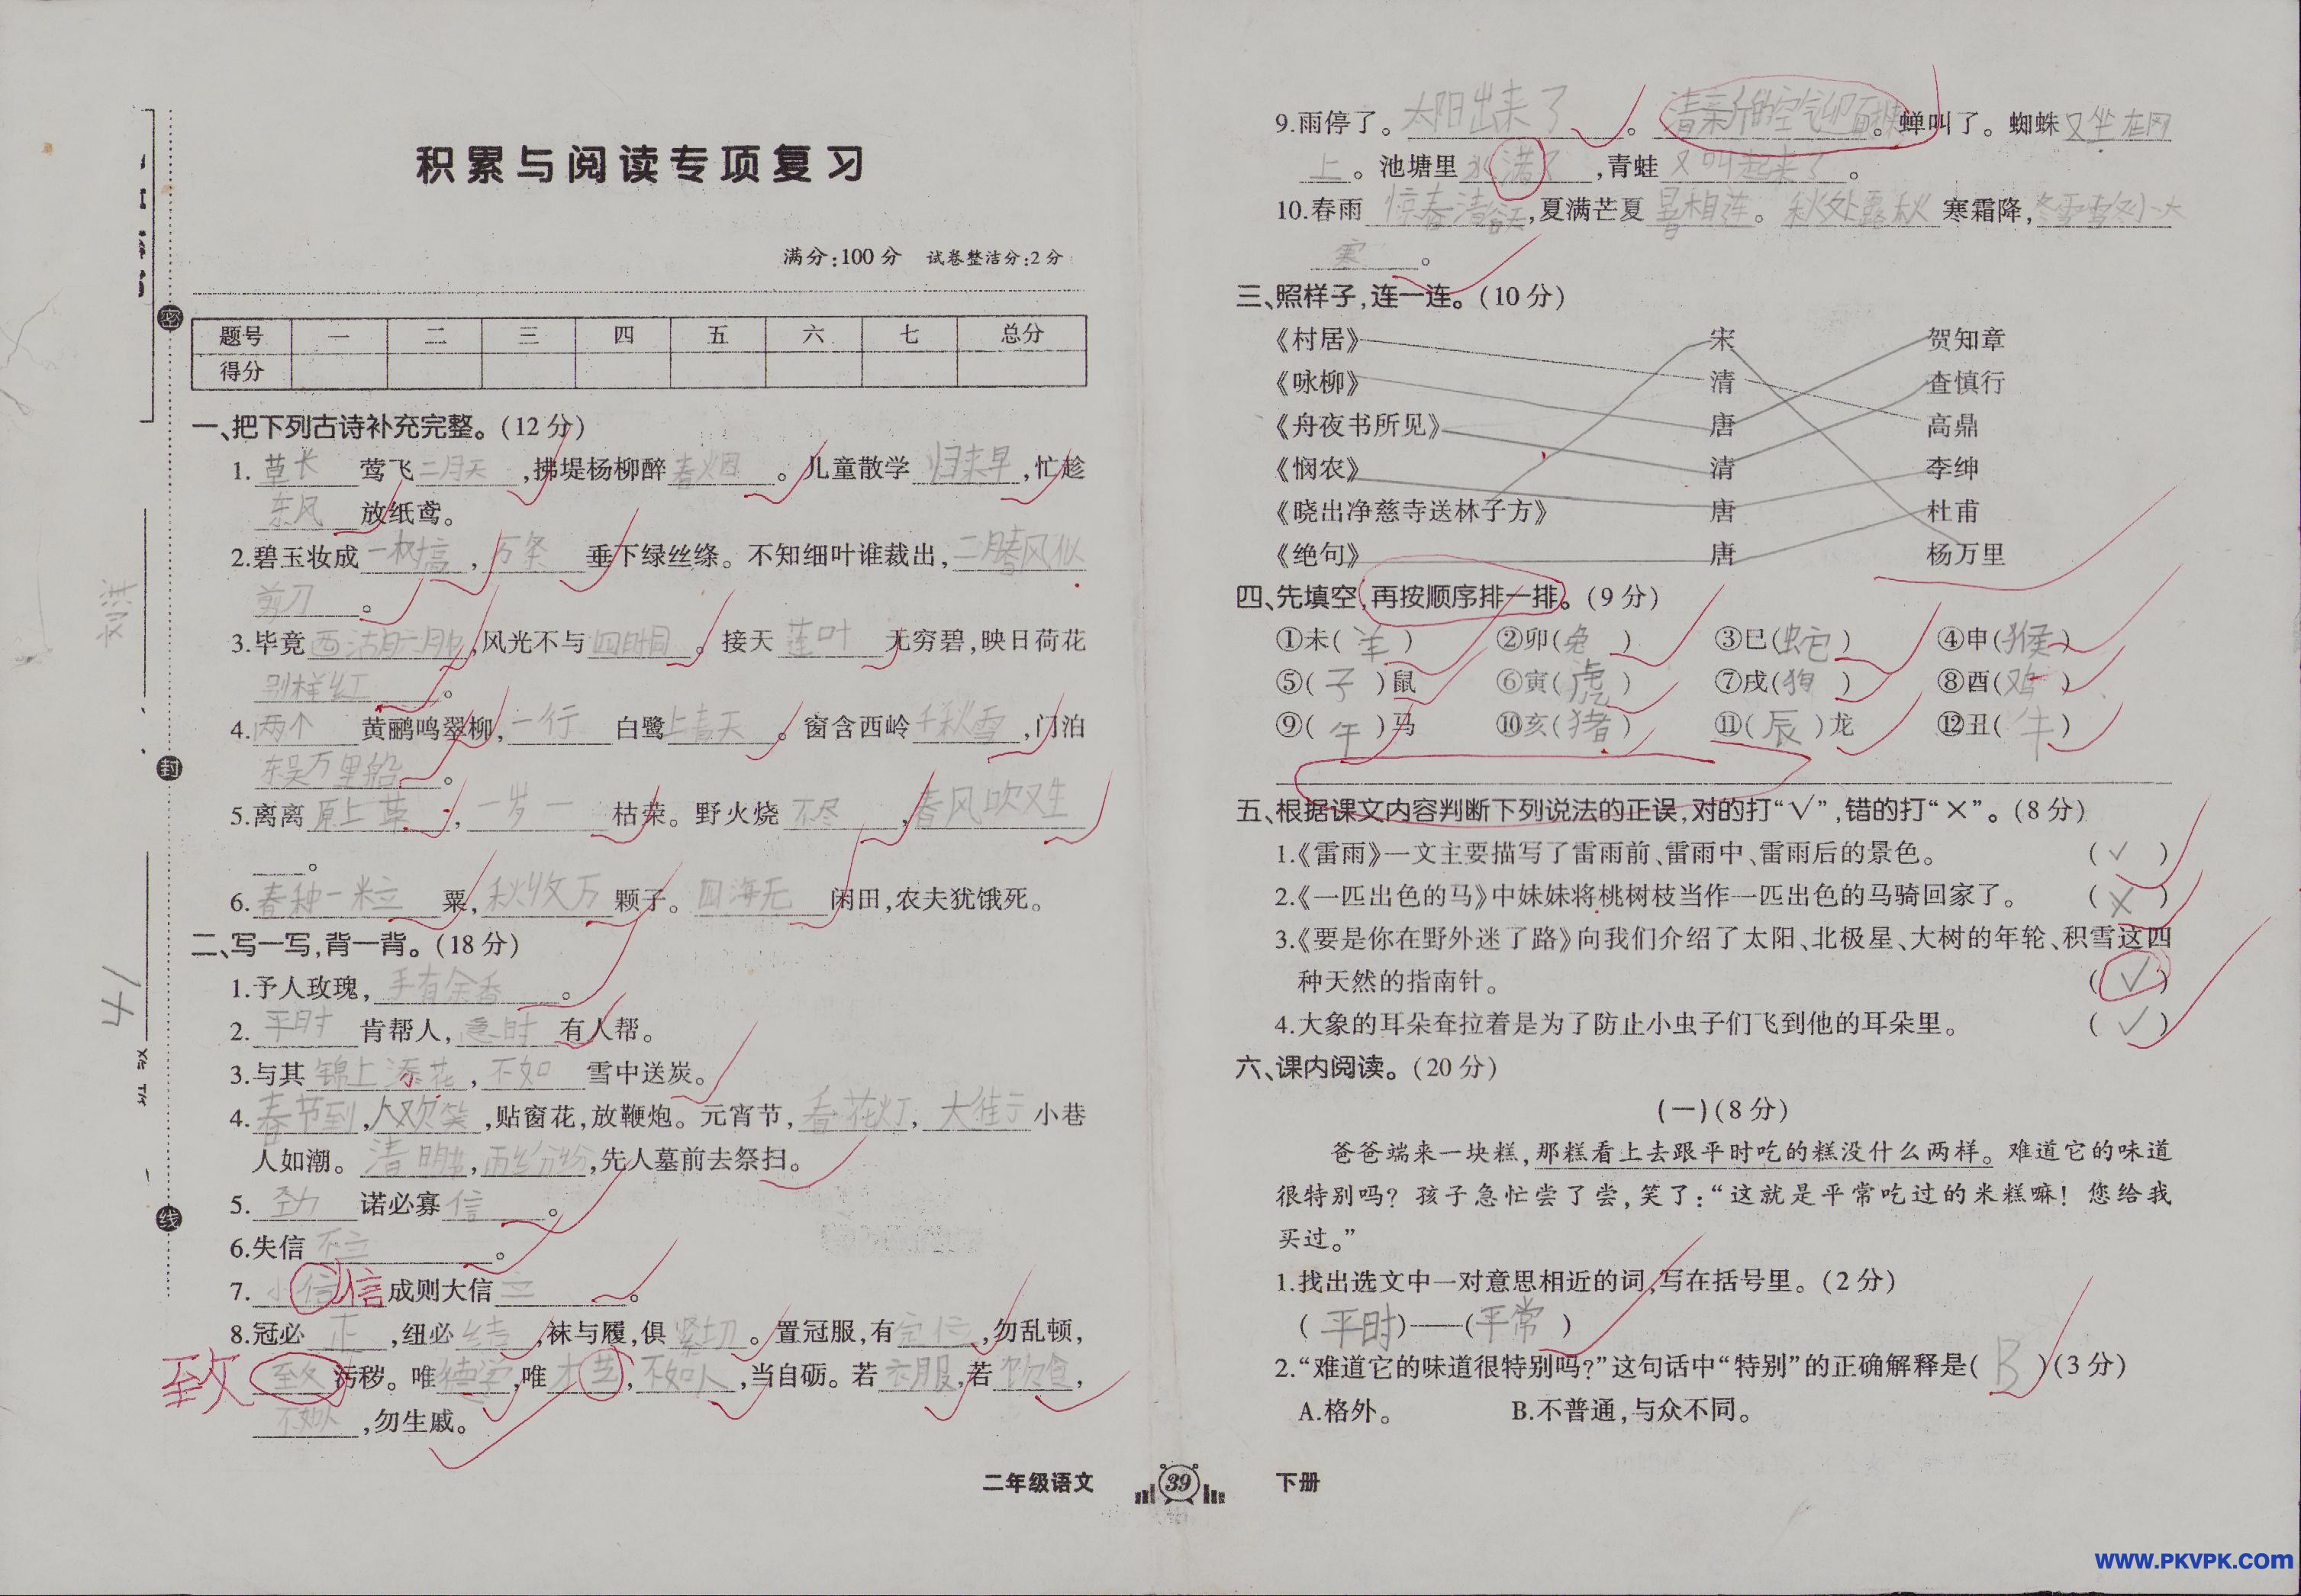 积累与阅读专项复习
满分:100分 试卷整洁分:2分
题号 一 二 三 四 五 六 七 总分
得分
一、把下列古诗补充完整。(12分)
1.草长莺飞二月天,拂堤杨柳醉春烟。儿童散学归来早,忙趁
东风放纸鸢。
2.碧玉妆成一树高,万条垂下绿丝绦。不知细叶谁裁出,二月春风似
剪刀。
3.毕竟西湖六月中,风光不与四时同。接天莲叶无穷碧,映日荷花
别样红。
4.两个黄鹂鸣翠柳,一行白鹭上青天。窗含西岭千秋雪,门泊
东吴万里船。
5.离离原上草,一岁一枯荣。野火烧不尽,春风吹又生
。
6.春种一粒粟,秋收万颗子。四海无闲田,农夫犹饿死。
二、写一写,背一背。(18分)
1.予人玫瑰,手有余香。
2.平时肯帮人,急时有人帮。
3.与其锦上添花,不如雪中送炭。
4.春节到,人欢笑,贴窗花,放鞭炮。元宵节,看花灯,大街小巷
人如潮。清明节,雨纷纷,先人墓前去祭扫。
5.诺必寡信。
6.失信不立。
7.小信信成则大信立。
8.冠必正,纽必结,袜与履,俱紧切。置冠服,有定位,勿乱顿,
致污秽。唯德学,唯才艺,不如人,当自砺。若衣服,若饮食,
不如人,勿生戚。
二年级语文 39 下册
9.雨停了。太阳出来了。清新的空气迎面扑来。蝉叫了。蜘蛛又坐在网
上。池塘里水满了,青蛙又叫起来了。
10.春雨惊春清谷天,夏满芒夏暑相连。秋处露秋寒霜降,冬雪雪冬小大
寒。
三、照样子,连一连。(10分)
《村居》 宋 贺知章
《咏柳》 清 查慎行
《舟夜书所见》 唐 高鼎
《悯农》 清 李绅
《晓出净慈寺送林子方》 唐 杜甫
《绝句》 唐 杨万里
四、先填空,再按顺序排一排。(9分)
①未(羊) ②卯(兔) ③巳(蛇) ④申(猴)
⑤(子)鼠 ⑥寅(虎) ⑦戌(狗) ⑧酉(鸡)
⑨(午)马 ⑩亥(猪) ⑪(辰)龙 ⑫丑(牛)
五、根据课文内容判断下列说法的正误,对的打“√”,错的打“×”。(8分)
1.《雷雨》一文主要描写了雷雨前、雷雨中、雷雨后的景色。(√)
2.《一匹出色的马》中妹妹将桃树枝当作一匹出色的马骑回家了。(×)
3.《要是你在野外迷了路》向我们介绍了太阳、北极星、大树的年轮、积雪这四
种天然的指南针。(√)
4.大象的耳朵耷拉着是为了防止小虫子们飞到他的耳朵里。(√)
六、课内阅读。(20分)
(一)(8分)
爸爸端来一块糕,那糕看上去跟平时吃的糕没什么两样。难道它的味道
很特别吗?孩子急忙尝了尝,笑了:“这就是平常吃过的米糕嘛!您给我
买过。”
1.找出选文中一对意思相近的词,写在括号里。(2分)
(平时)——(平常)
2.“难道它的味道很特别吗?”这句话中“特别”的正确解释是(B)(3分)
A.格外。 B.不普通,与众不同。
密
封
线
41
致
WWW.PKVPK.COM